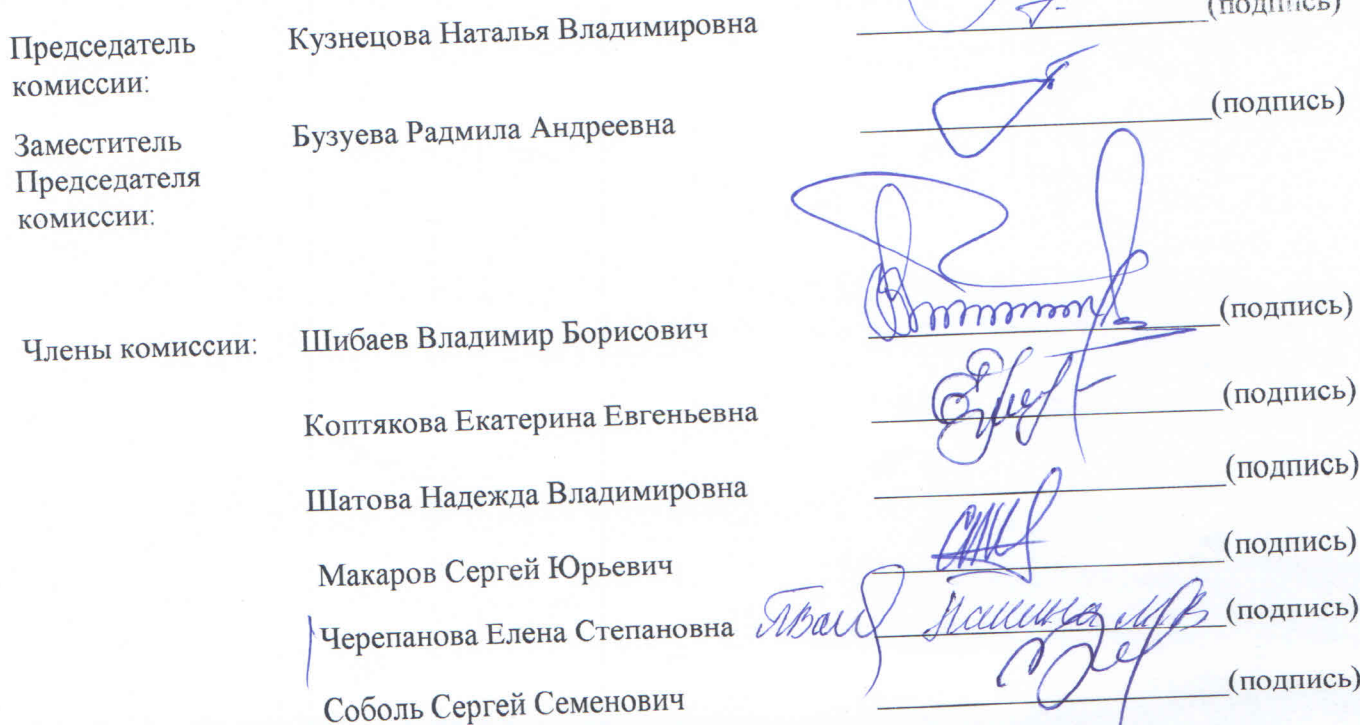 Председатель комиссии: Кузнецова Наталья Владимировна (подпись)
Заместитель Председателя комиссии: Бузуева Радмила Андреевна (подпись)
Члены комиссии: Шибаев Владимир Борисович (подпись)
Коптякова Екатерина Евгеньевна (подпись)
Шатова Надежда Владимировна (подпись)
Макаров Сергей Юрьевич (подпись)
Черепанова Елена Степановна (подпись)
Соболь Сергей Семенович (подпись)